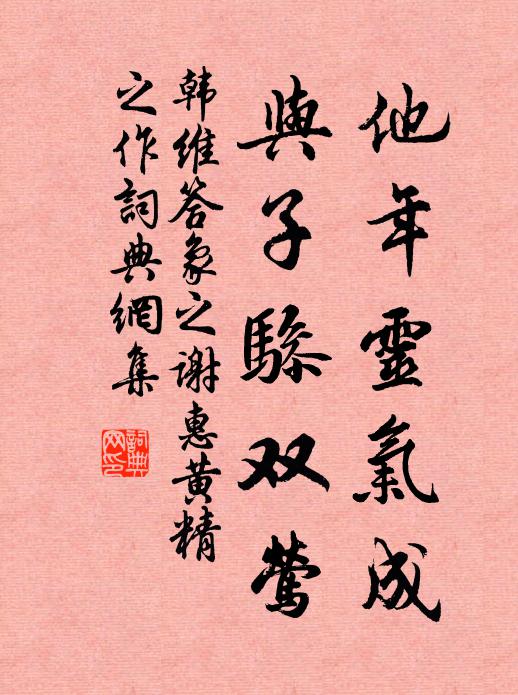 他年靈氣成
與子驂双鶯
韩維答象之谢惠黄精
之作詞典網集
詞典
网印